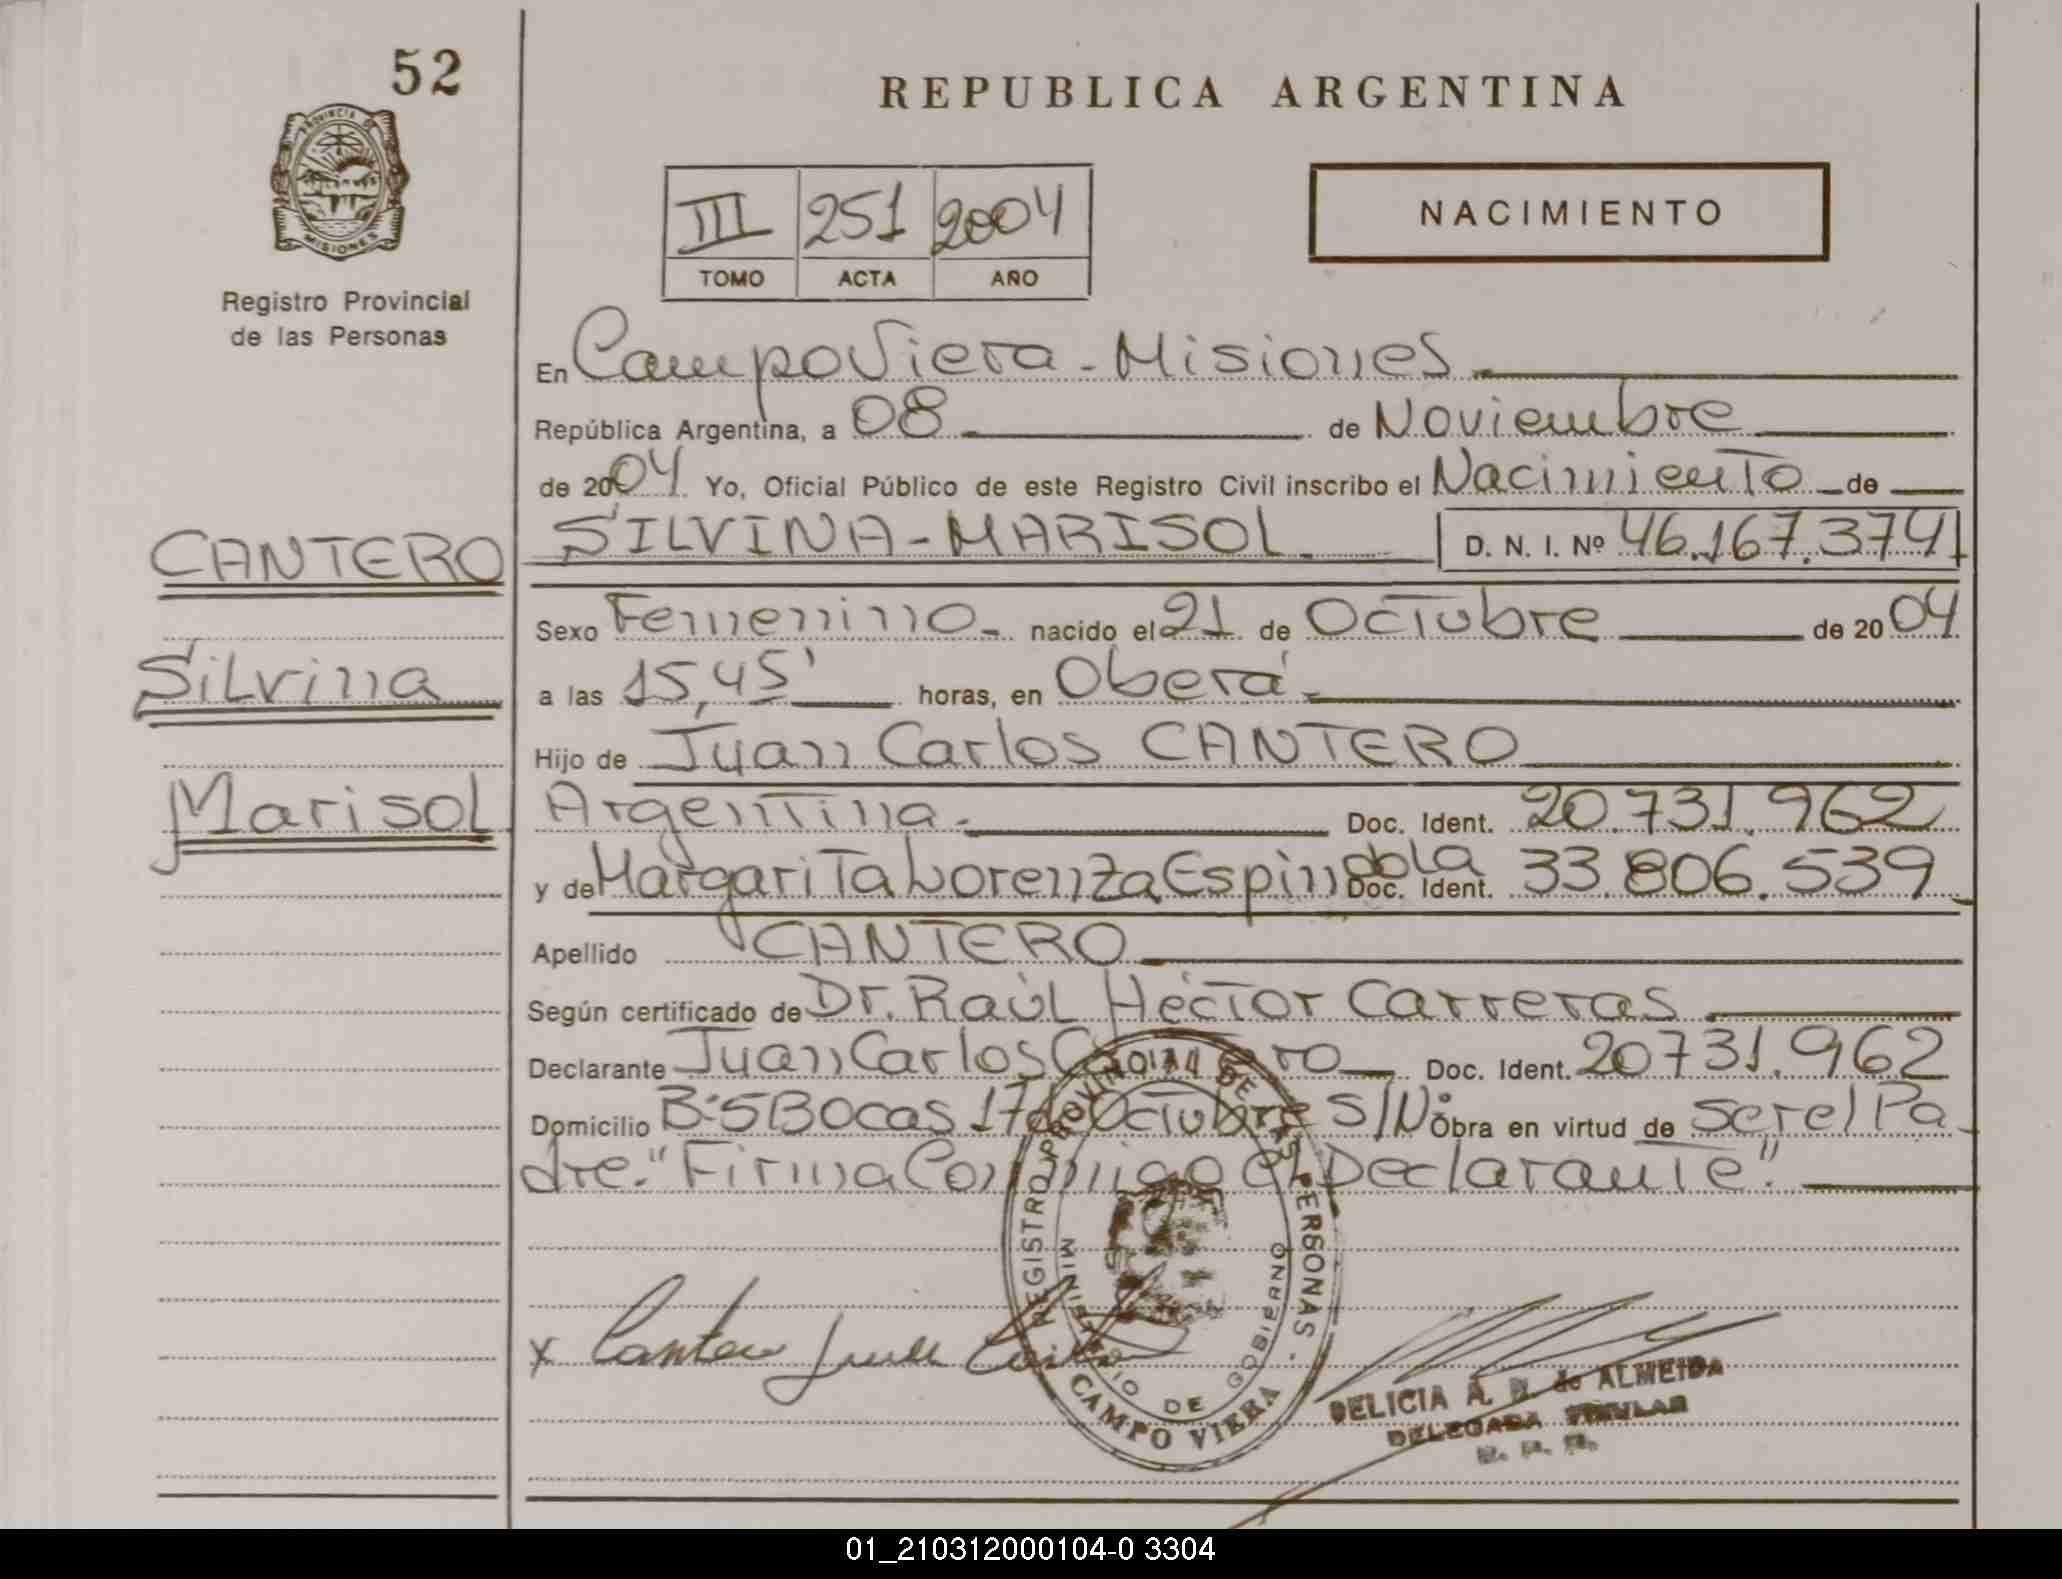 52
REPUBLICA ARGENTINA
PROVINCIA DE
MISIONES
Registro Provincial
de las Personas
III 251 2004
TOMO ACTA AÑO
NACIMIENTO
CANTERO
Silvina
Marisol
En Campo Viera - Misiones
República Argentina, a 08 de Noviembre
de 2004. Yo, Oficial Público de este Registro Civil inscribo el Nacimiento de
SILVINA - MARISOL D. N. I. Nº 46.167.374
Sexo Femenino nacido el 21 de Octubre de 2004
a las 15,45' horas, en Oberá.
Hijo de Juan Carlos CANTERO
Argentina. Doc. Ident. 20.731.962
y de Margarita Lorenza Espindola Doc. Ident. 33.806.539
Apellido CANTERO
Según certificado de Dr. Raúl Héctor Carreras
Declarante Juan Carlos Cantero Doc. Ident. 20731.962
Domicilio B:5Bocas 17 de Octubre S/Nº Obra en virtud de ser el Pa-
dre. "Firma Conmigo el Declarante".
REGISTRO PROVINCIAL DE LAS PERSONAS
MINISTERIO DE GOBIERNO
CAMPO VIERA
x Cantero Juan Carlos
DELICIA A. de ALMEIDA
DELEGADA TITULAR
01_210312000104-0 3304